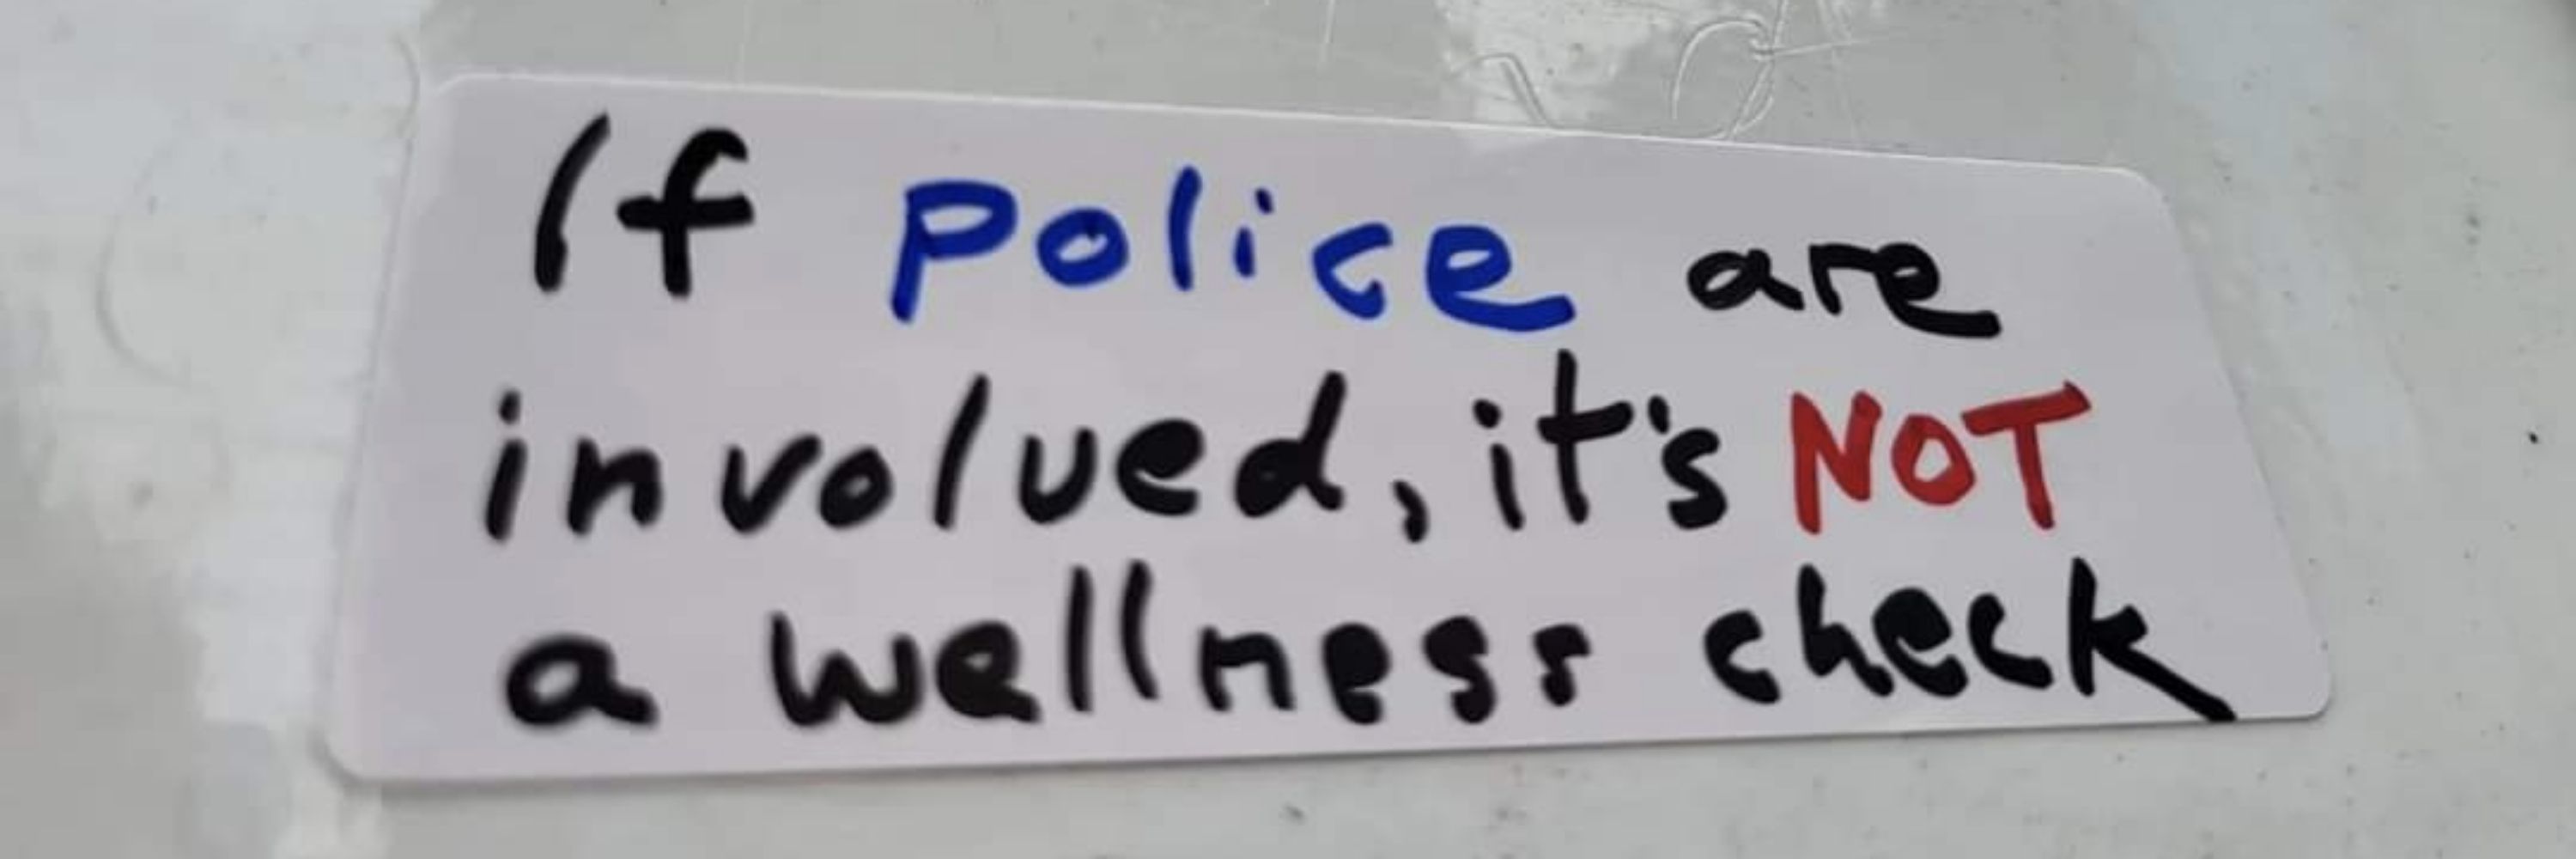 If police are
involved, it's NOT
a wellness check